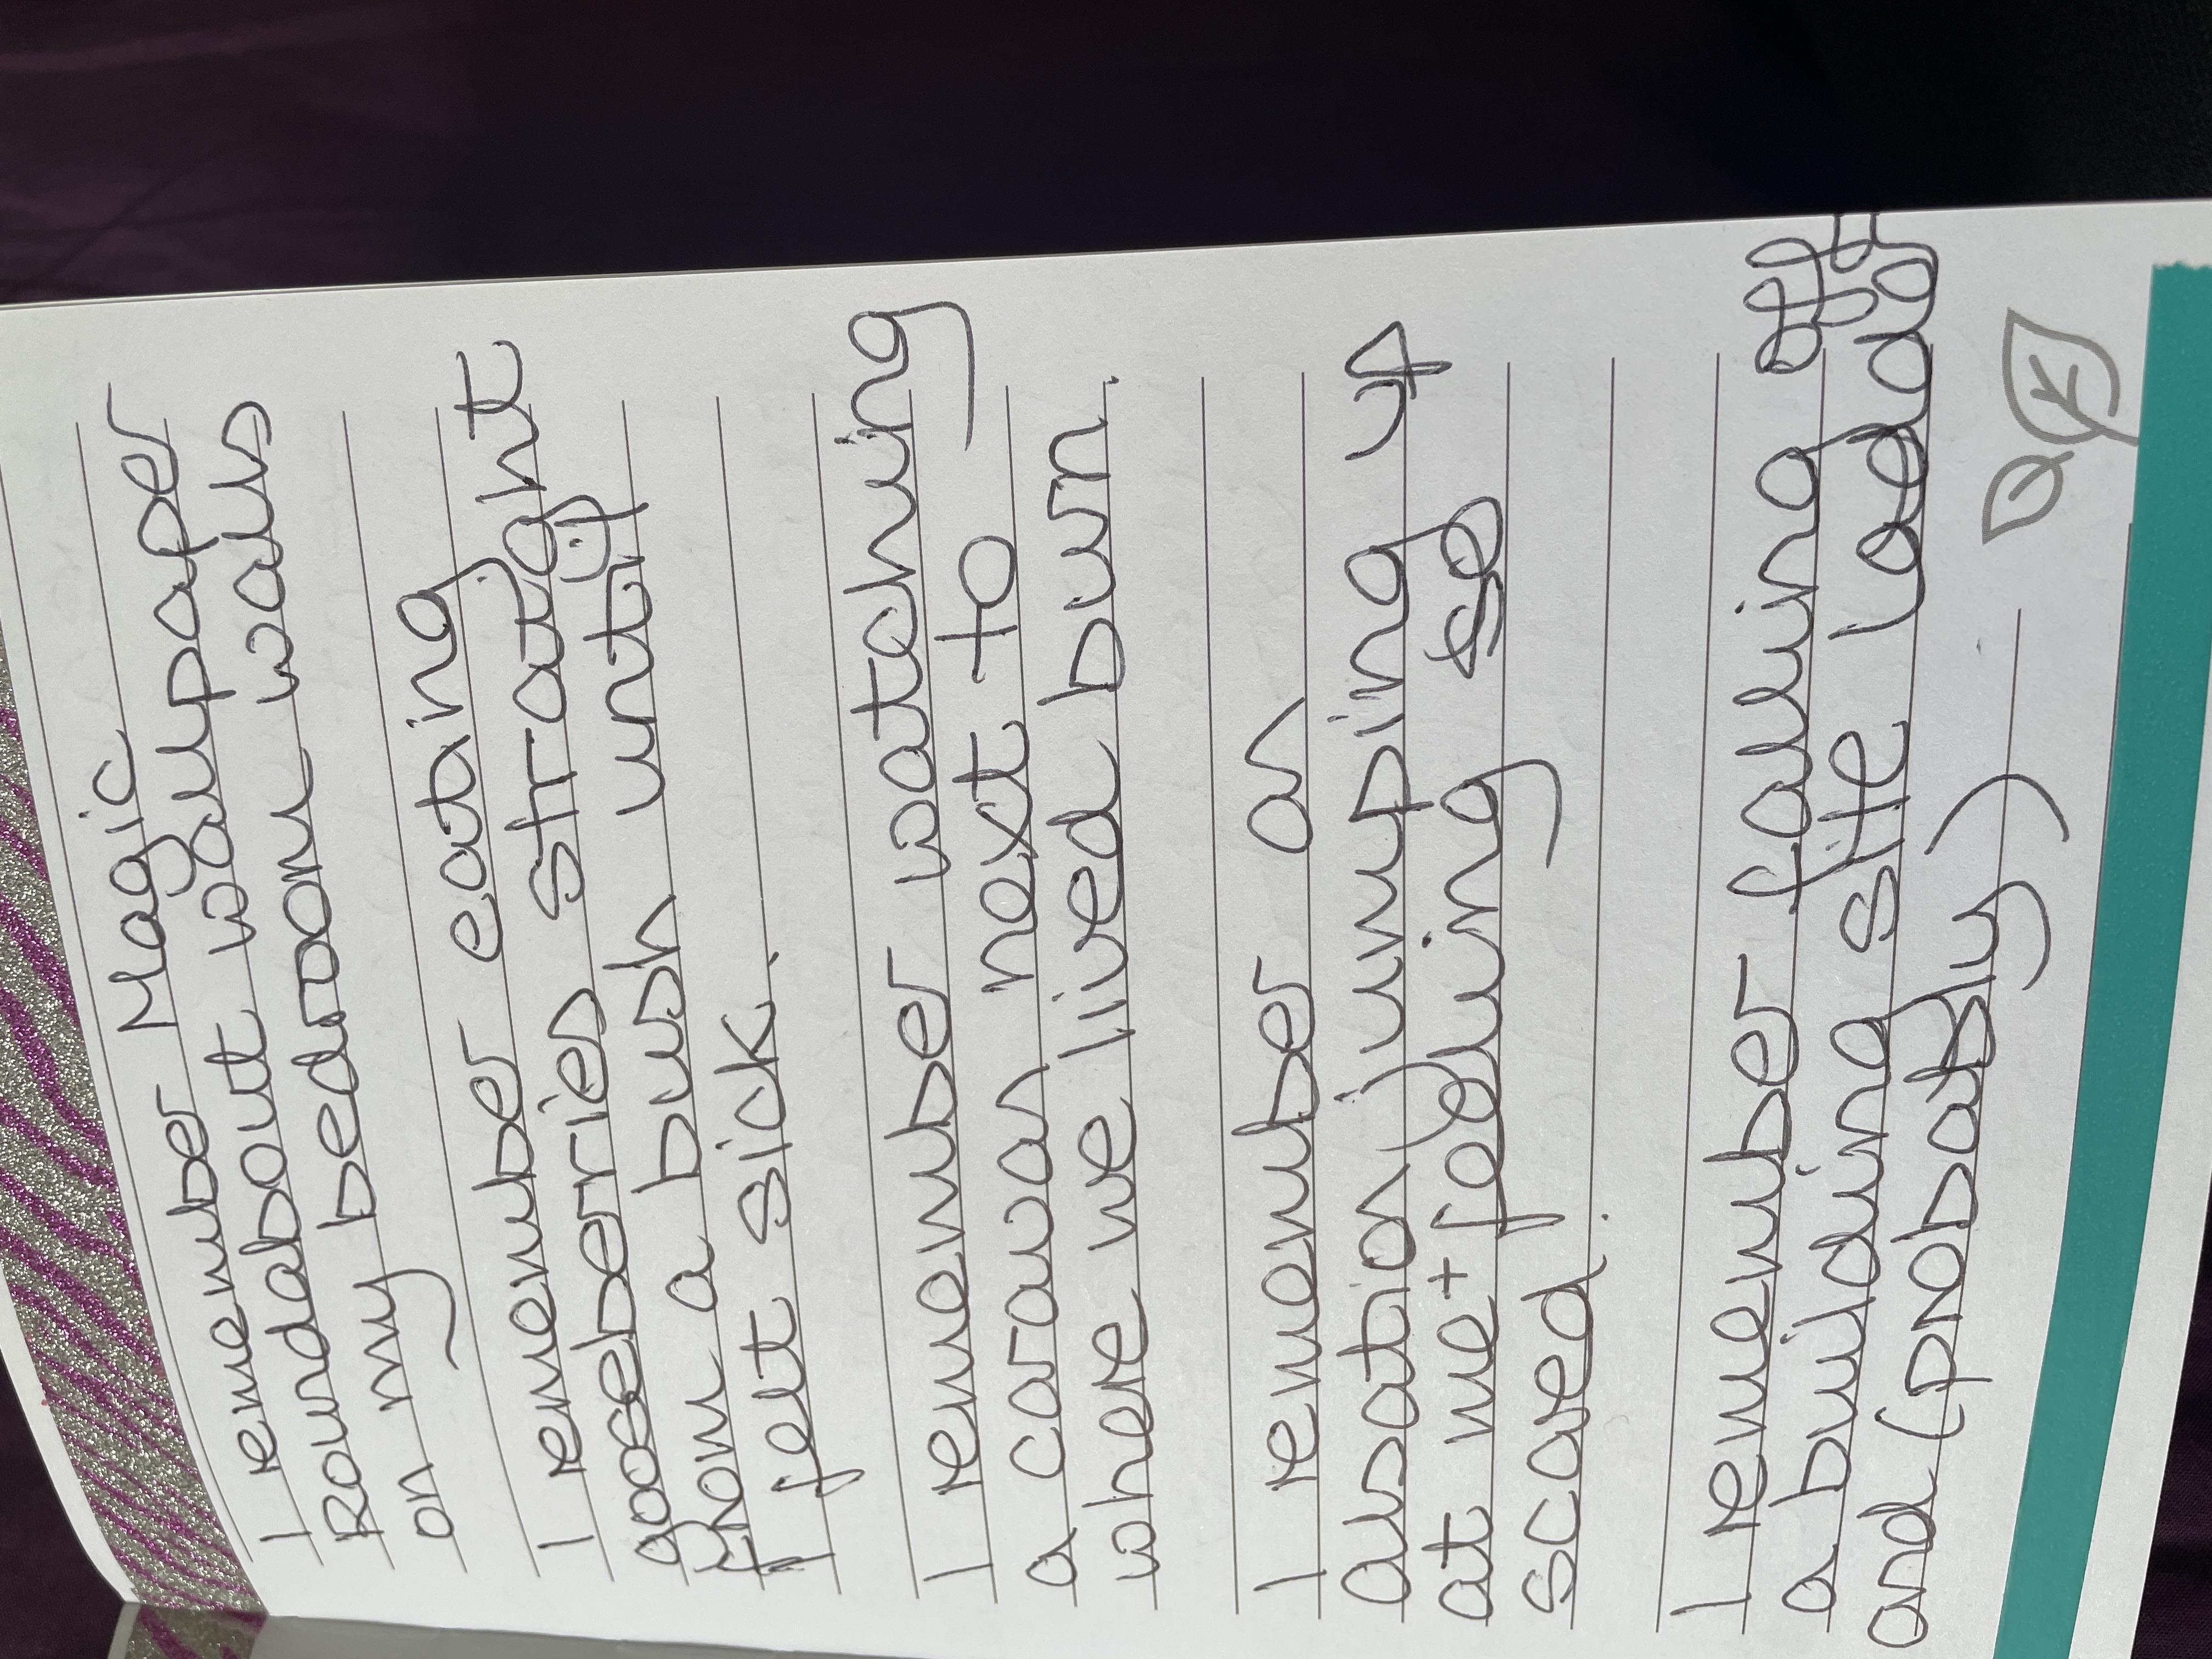 I remember Magic
Roundabout wallpaper
on my bedroom walls
I remember eating
gooseberries straight
from a bush until
I felt sick.
I remember watching
a caravan next to
where we lived burn.
I remember an
alsation jumping up
at me + feeling so
scared.
I remember falling off
a building site ladder
and (probably)